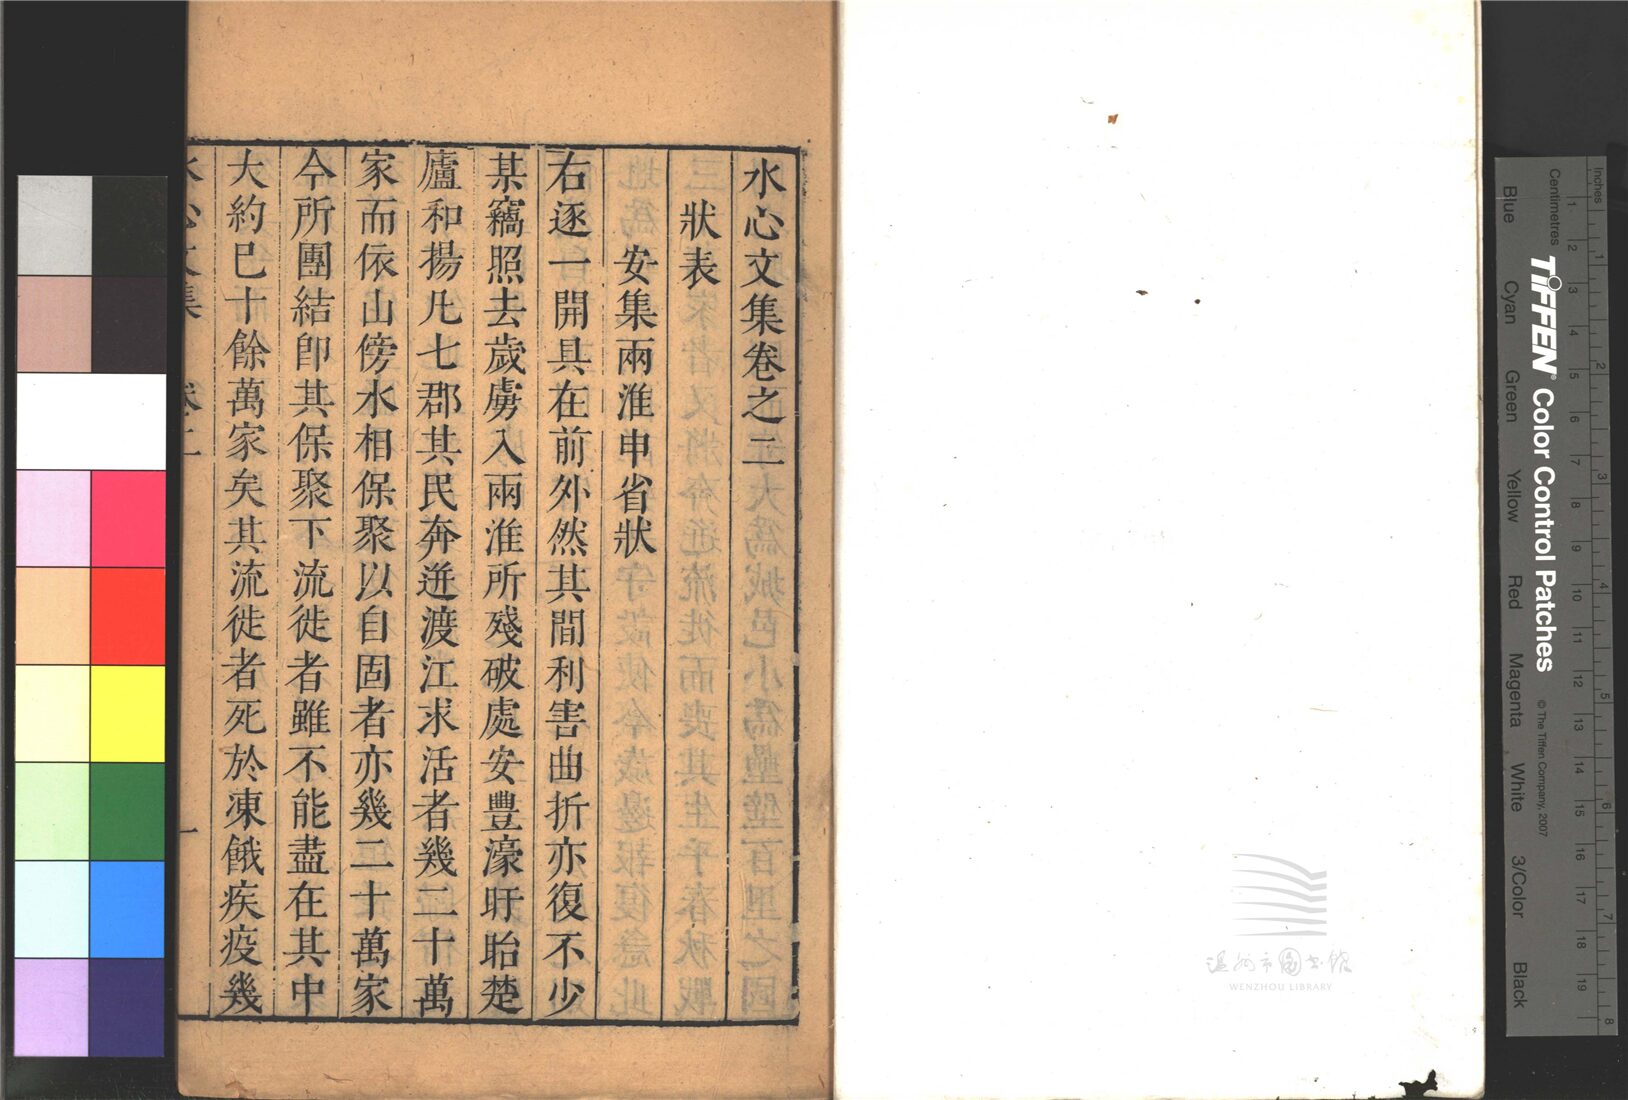 水心文集卷之二
狀表
安集兩淮申省狀
右逐一開具在前外然其間利害曲折亦復不少
某竊照去歲虜入兩淮所殘破處安豐濠盱眙楚
廬和揚凡七郡其民奔迸渡江求活者幾二十萬
家而依山傍水相保聚以自固者亦幾二十萬家
今所團結卽其保聚下流徙者雖不能盡在其中
大約已十餘萬家矣其流徙者死於凍餓疾疫幾
水心文集 卷二 一
温州市图书馆
WENZHOU LIBRARY
Inches
Centimetres
TIFFEN® Color Control Patches
© The Tiffen Company, 2007
Blue Cyan Green Yellow Red Magenta White 3/Color Black
1 2 3 4 5 6 7 8 9 10 11 12 13 14 15 16 17 18 19
1 2 3 4 5 6 7 8